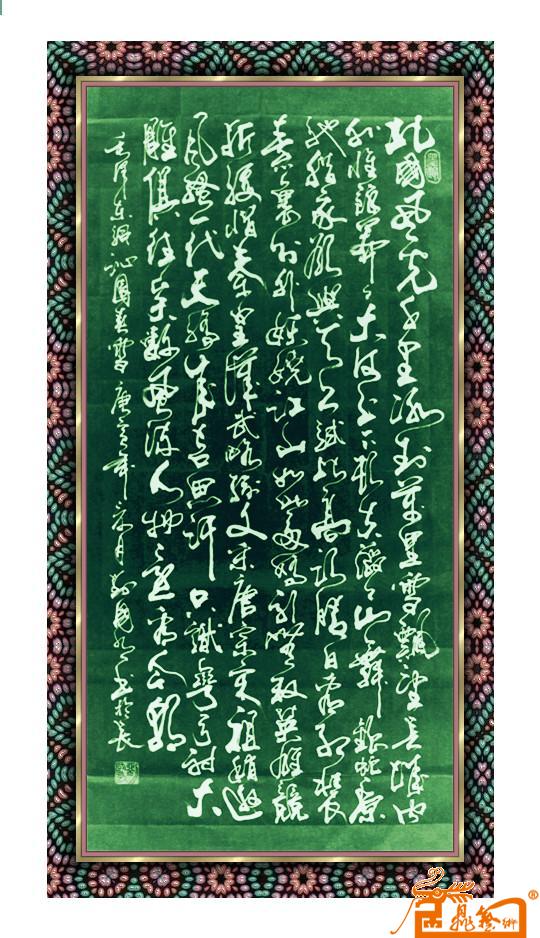 北國風光千里冰封萬里雪飄望長城內
外惟餘莽莽大河上下頓失滔滔山舞銀蛇原
馳蠟象欲與天公試比高須晴日看紅裝
素裹分外妖嬈江山如此多嬌引無數英雄競
折腰惜秦皇漢武略輸文采唐宗宋祖稍遜
風騷一代天驕成吉思汗只識彎弓射大
雕俱往矣數風流人物還看今朝
毛澤東詞沁園春雪庚寅年月書於長